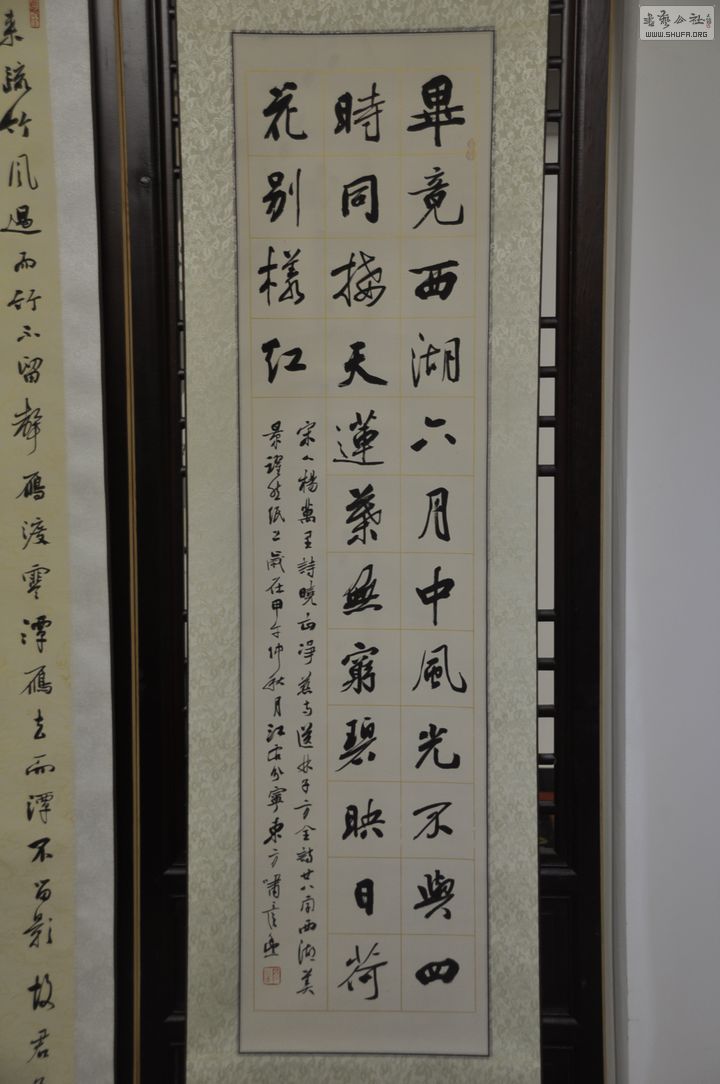 畢竟西湖六月中風光不與四
時同接天蓮葉無窮碧映日荷
花别樣紅
宋人楊萬里詩曉出淨慈寺送林子方全詩廿八字西湖美
景躍然紙上歲在甲午仲秋月江右分寧東方
来疏竹風過而竹不留聲鴈渡寒潭鴈去而潭不留影故君
WWW.SHUFA.ORG